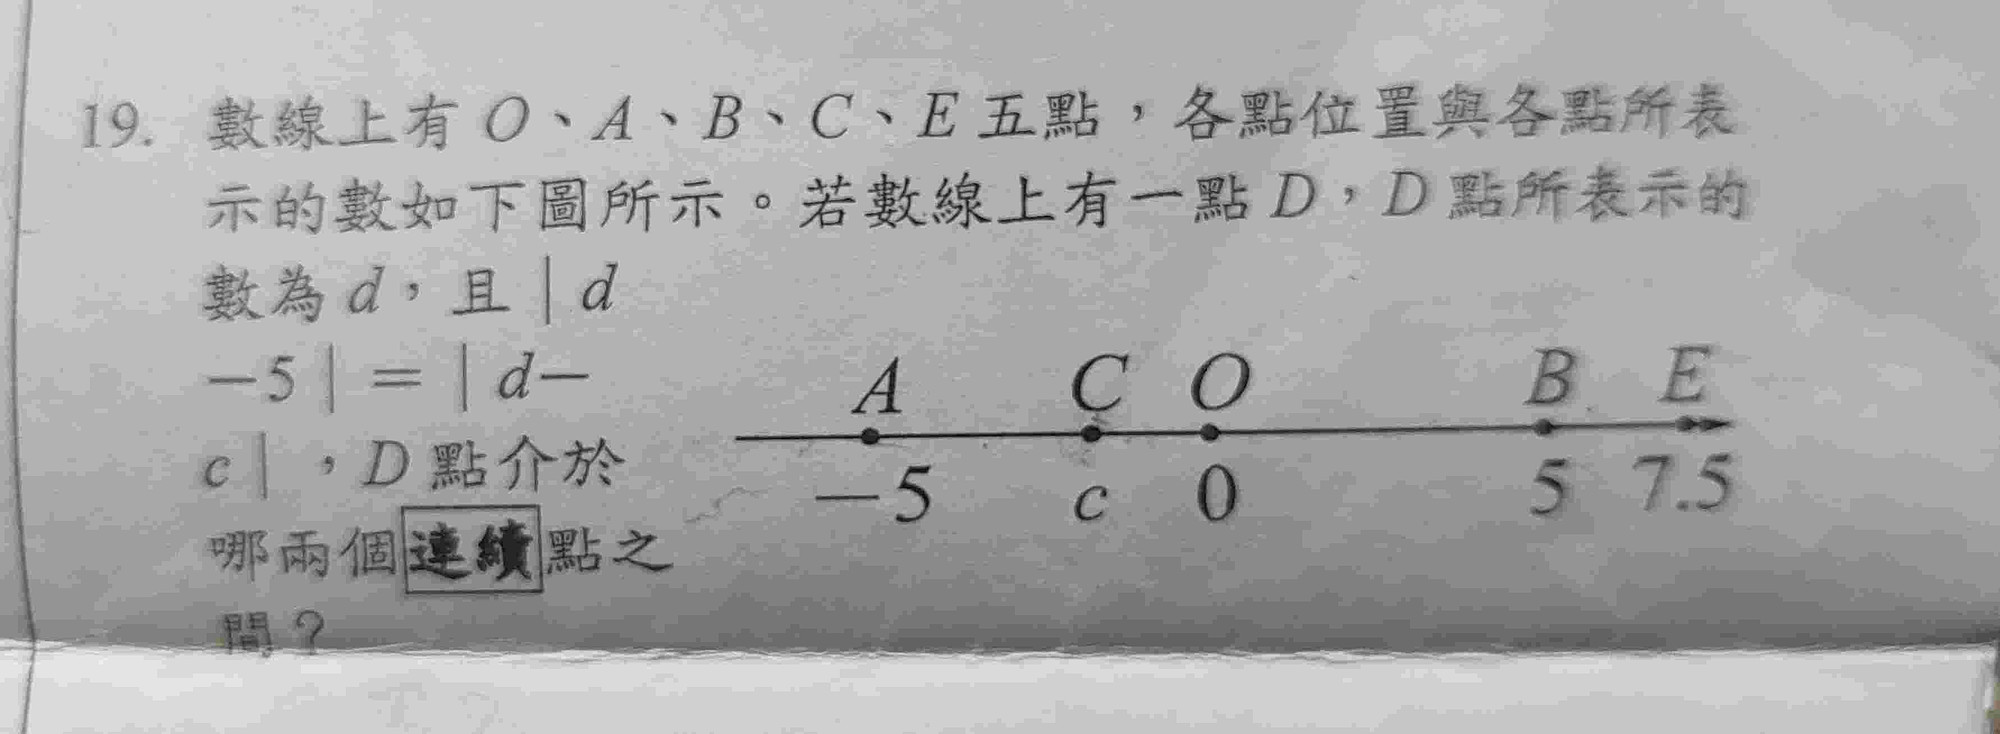 19. 數線上有 O、A、B、C、E 五點，各點位置與各點所表
示的數如下圖所示。若數線上有一點 D，D 點所表示的
數為 d，且 | d
－5 | ＝ | d－
c |，D 點介於
哪兩個連續點之
間？
A C O B E
－5 c 0 5 7.5